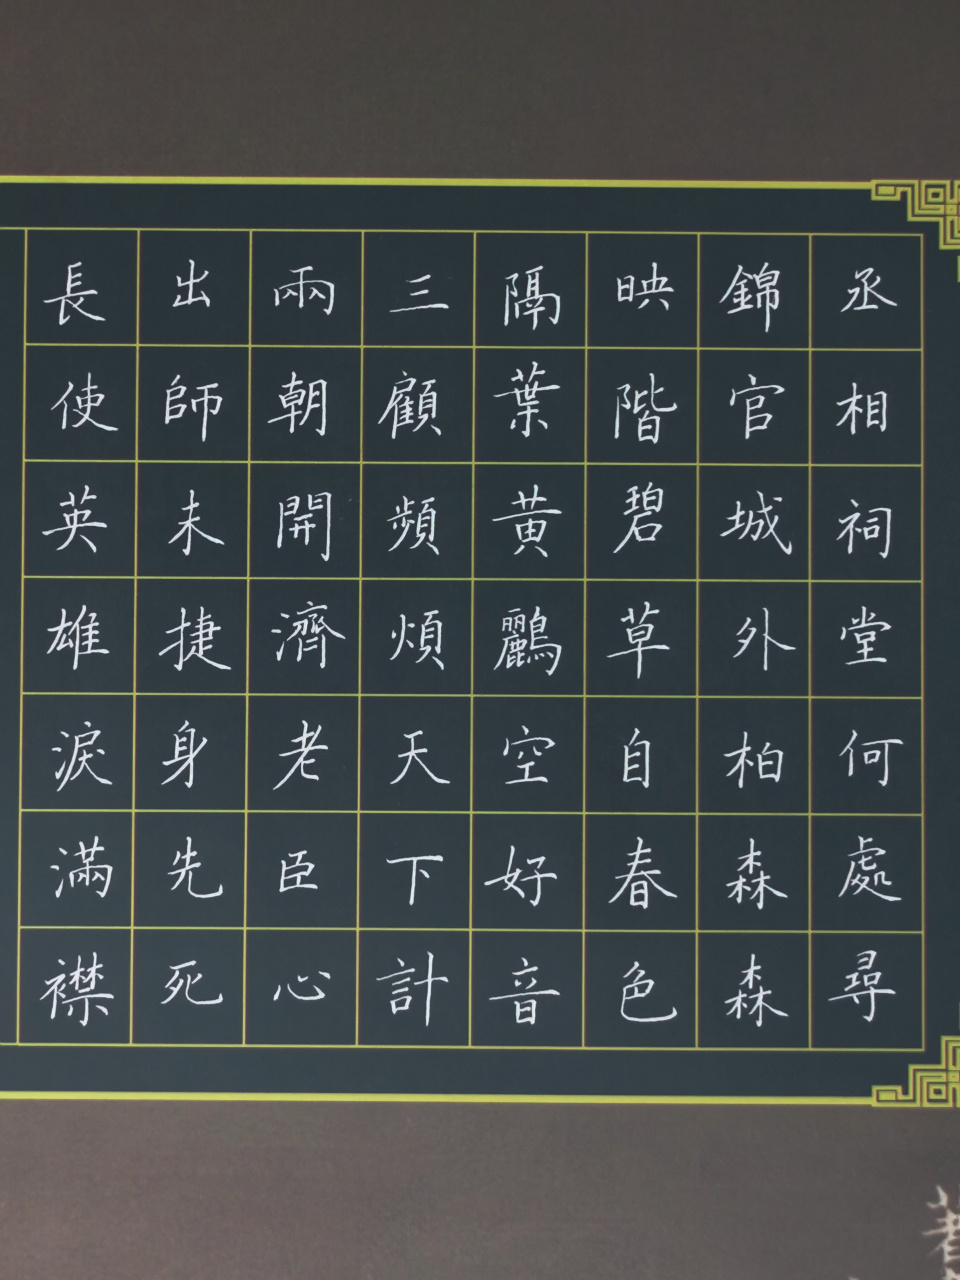 丞相祠堂何處尋
錦官城外柏森森
映階碧草自春色
隔葉黄鸝空好音
三顧頻煩天下計
兩朝開濟老臣心
出師未捷身先死
長使英雄淚滿襟